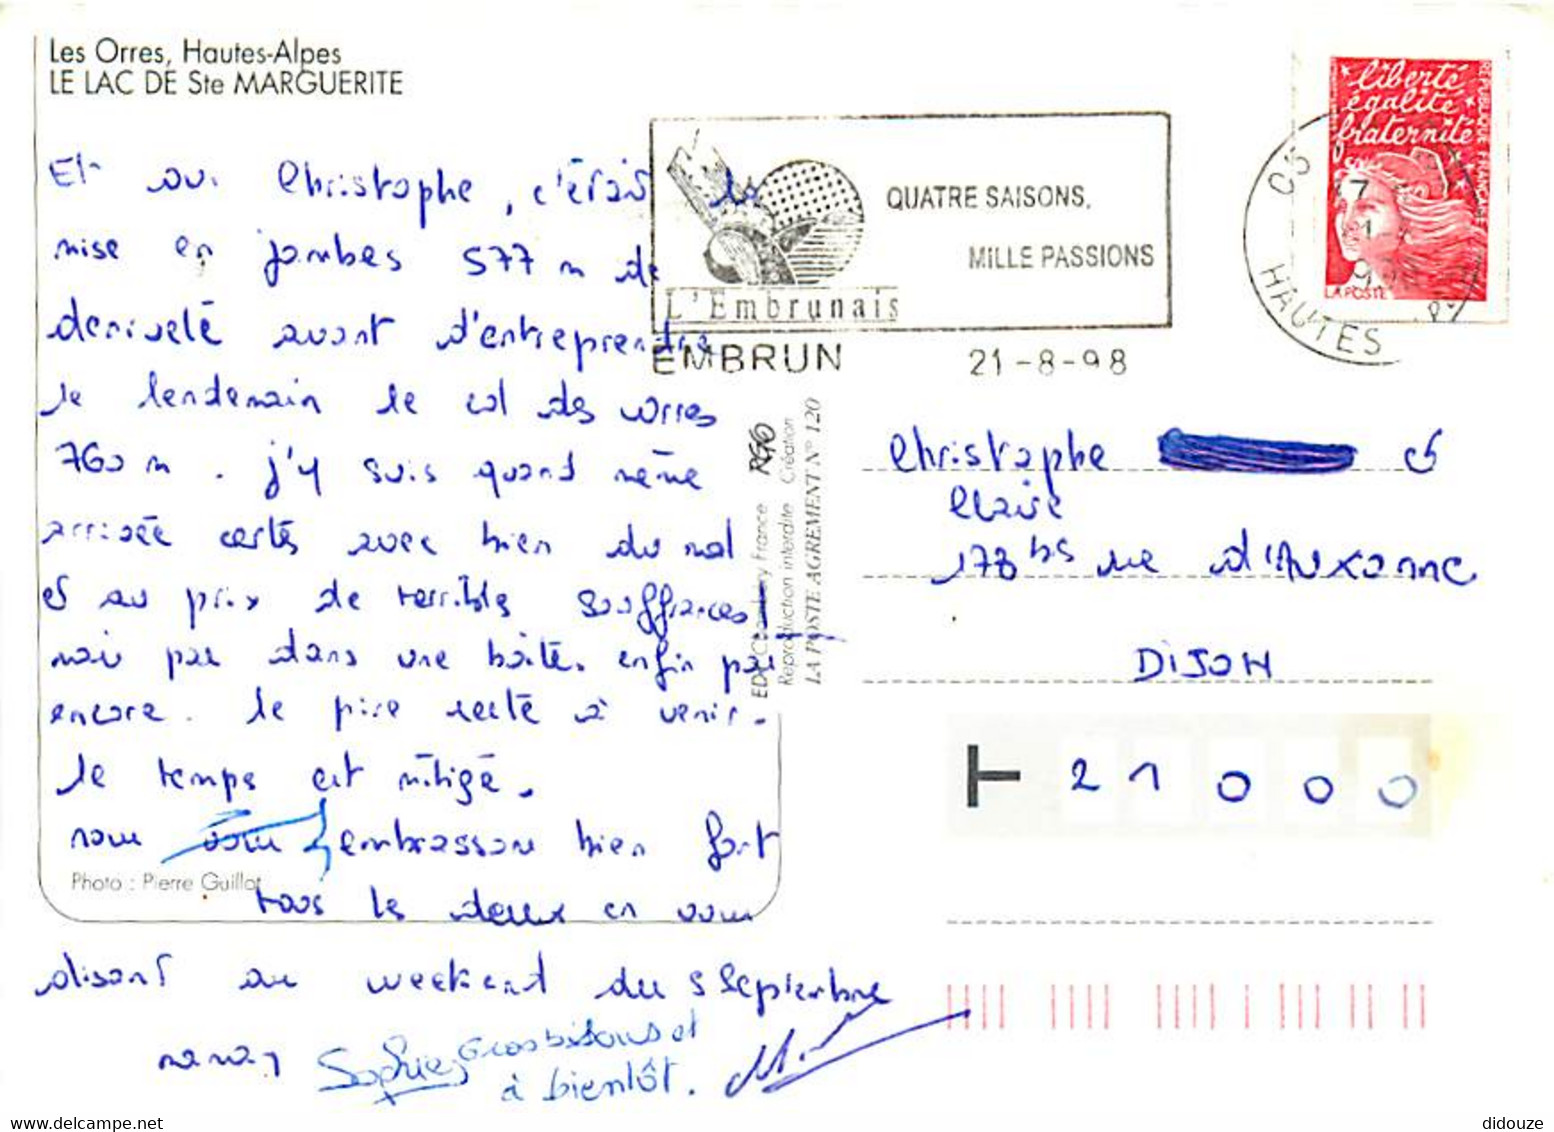 Les Orres, Hautes-Alpes
LE LAC DE Ste MARGUERITE
Et oui Christophe, c'était la
mise en jambes 577 m de
denivelé avant d'entreprendre
le lendemain le col des orres
760 m. j'y suis quand même
arrivée certes avec bien du mal
et au prix de terribles souffrances
mais pas dans une boîte. enfin pas
encore. le pire reste à venir.
le temps est mitigé.
nous vous embrassons bien fort
Photo : Pierre Guillot
tous les deux en vous
disant au weekend du 5 septembre
Sophie Gros bisous et
à bientôt.
QUATRE SAISONS,
MILLE PASSIONS
L'Embrunais
EMBRUN 21-8-98
liberté
égalité
fraternité
RÉPUBLIQUE FRANÇAISE
LA POSTE
05
HAUTES
EDY Chambéry France
Reproduction interdite Création
LA POSTE AGREMENT N° 120
Christophe et
Claire
178 bis rue d'Auxonne
DIJON
21000
didouze